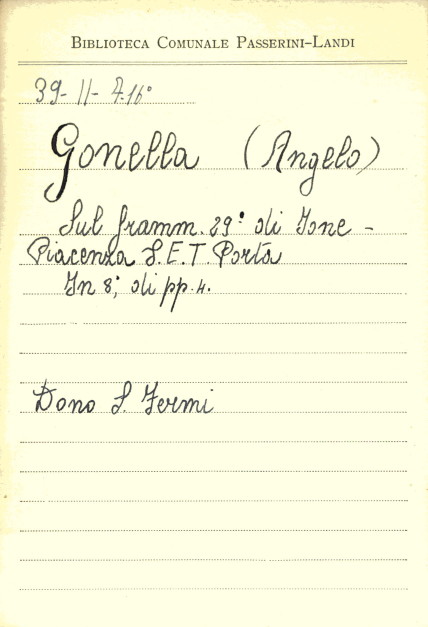 BIBLIOTECA COMUNALE PASSERINI-LANDI
39-11-7.16°
Gonella (Angelo)
Sul framm. 29° di Ione -
Piacenza S.E.T. Porta
In 8°, di pp. 4.
Dono S. Fermi